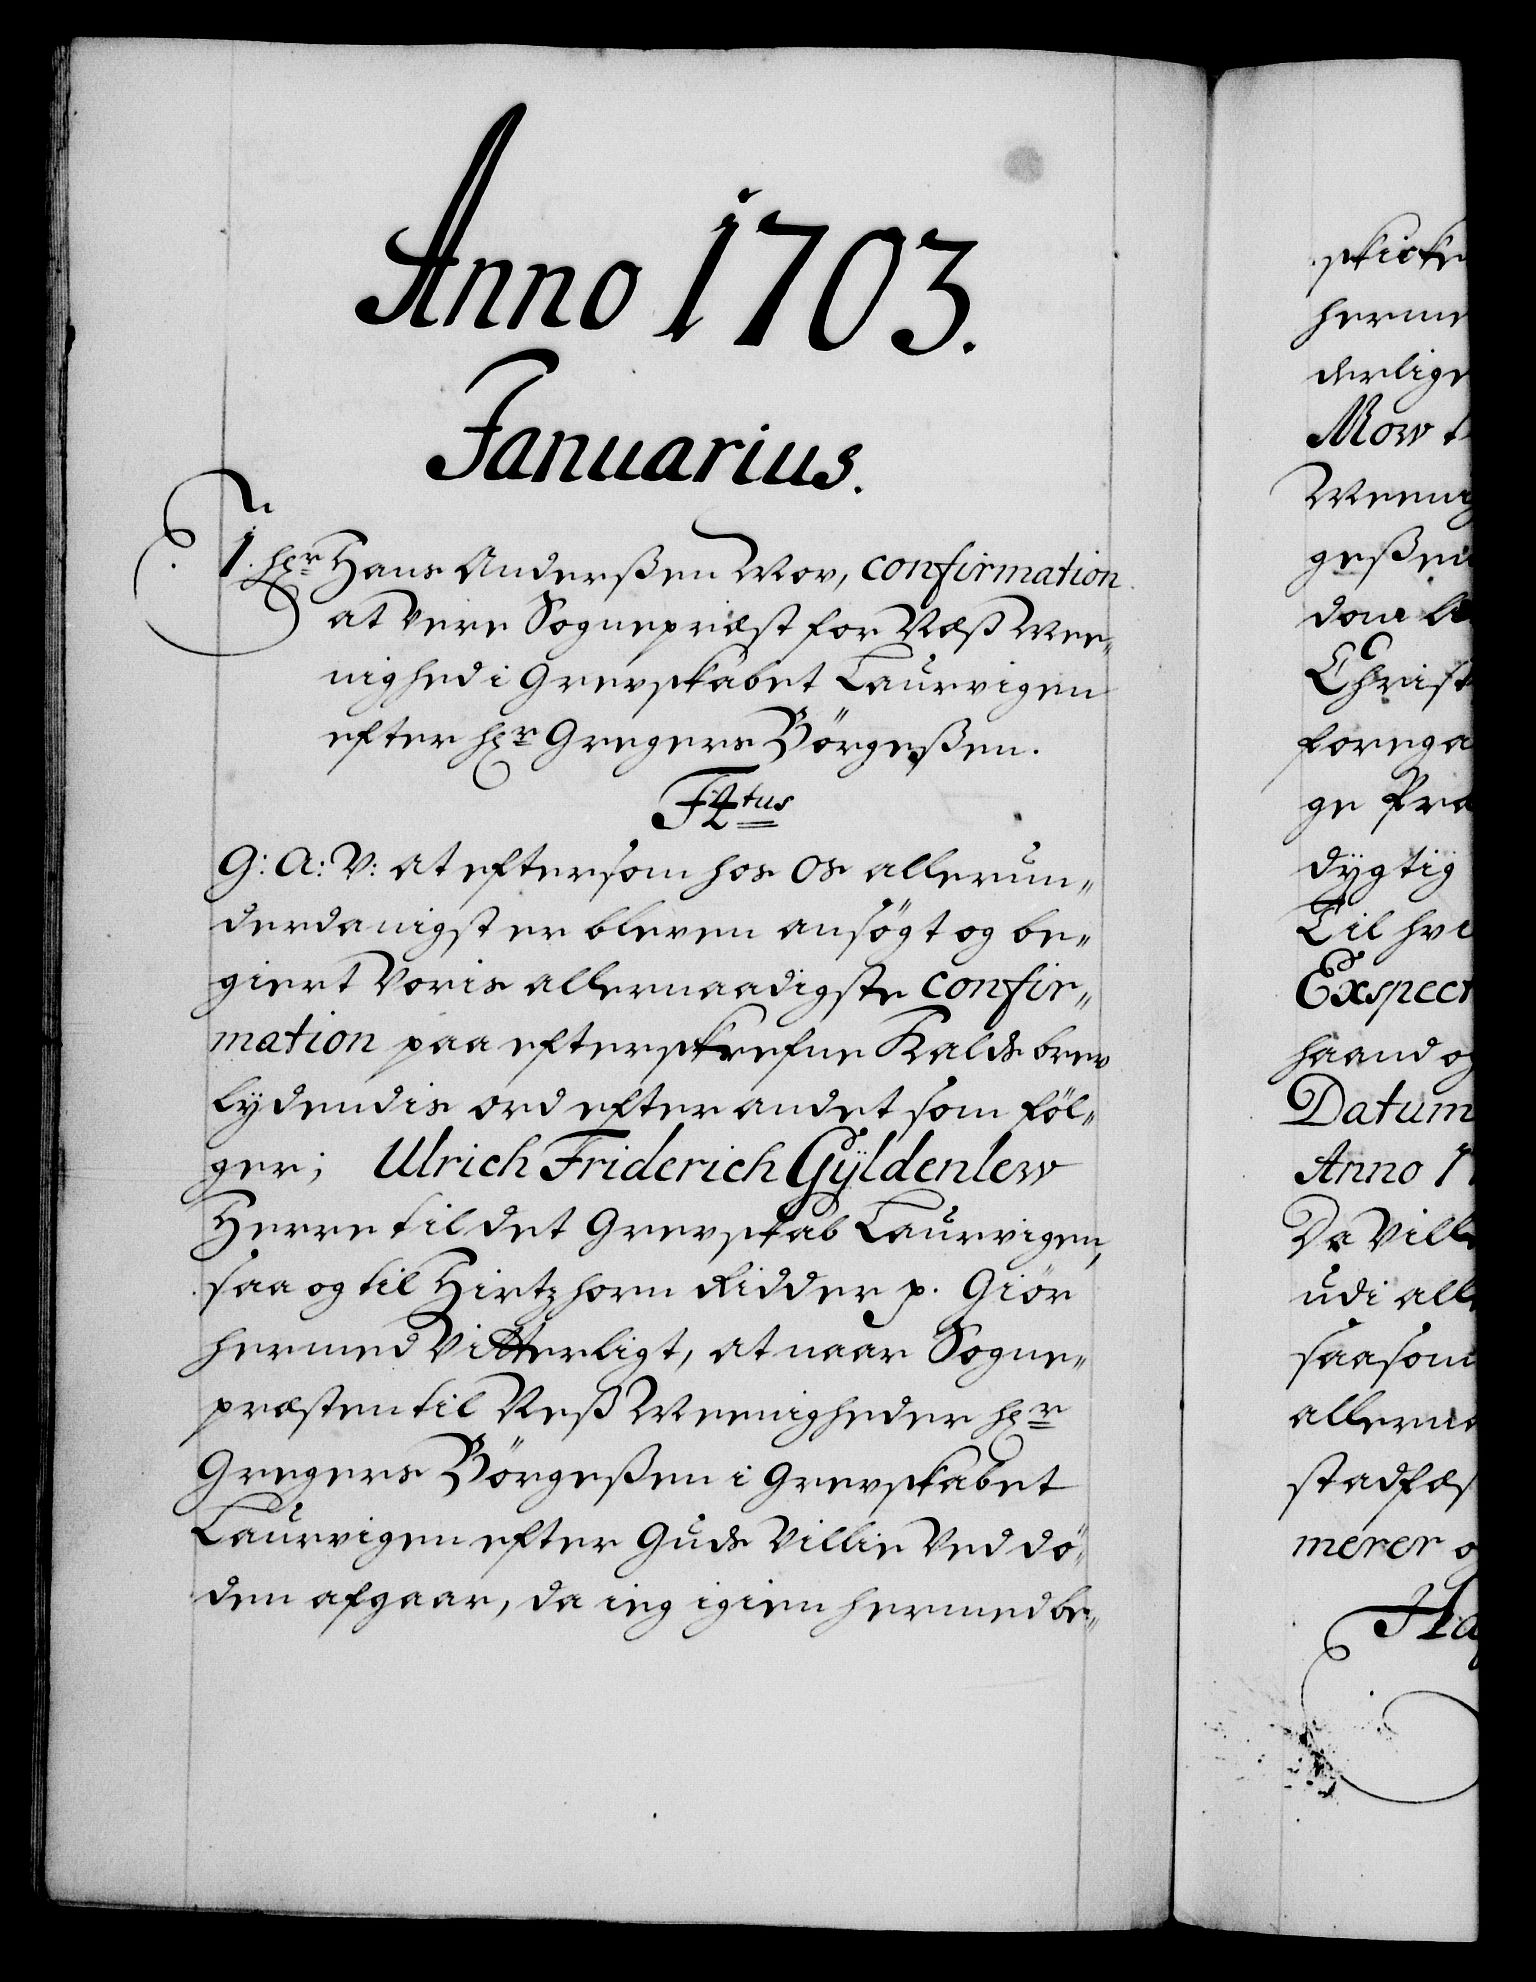 Anno 1703.
Januarius.
1. hr Hans Anderßen Mov, confirmation
at vere Sognepræst for Næß Mee„
nighed i Grevskabet Laurvigen
efter hr Gregers Börgeßen.
F4tus
G: A: V: at eftersom hos os allerun„
derdanigst er bleven ansögt og be„
giert Voris allernaadigste confir„
mation paa efterskrefne Kalds brev
lydendis ord efter andet som föl„
ger; Ulrich Friderich Gÿldenlew
Herre til det Grevskab Laurvigen,
saa og til Hirtzhorn Ridder p. Giör
hermed Vitterligt, at naar Sogne„
præsten til Neß Meenigheder hr
Gregers Börgeßen i Grevskabet
Laurvigen efter Guds Villie Ved dö„
den afgaar, da ieg igien hermed be„
skicke
herme
derlige
Mow t
Meenig
geßen
dom
Christ
forega
ge Præ
dygtig
Til hvi
Expect
haand og
Datum
Anno 1
Da Ville
udi alle
saasom
allerna
stadfæs
merer o